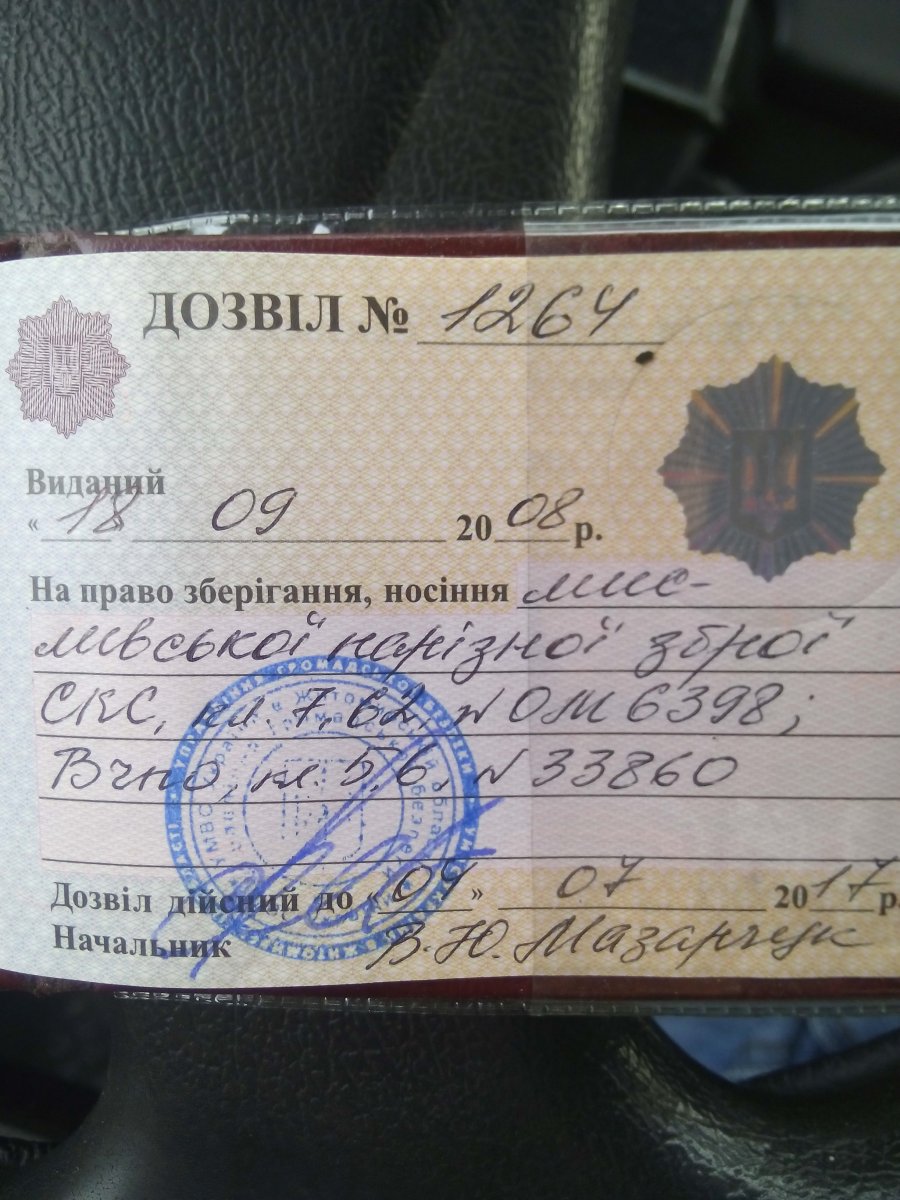 ДОЗВІЛ № 1264
Виданий
« 18 09 2008 р.
На право зберігання, носіння мис-
ливської нарізної зброї
СКС, кл. 7,62, № ОМ 6398;
кл. 5,6, № 33860
Дозвіл дійсний до «04» 07 2017 р.
Начальник В.Ю. Мазарчук
УПРАВЛІННЯ ГРОМАДСЬКОЇ БЕЗПЕКИ